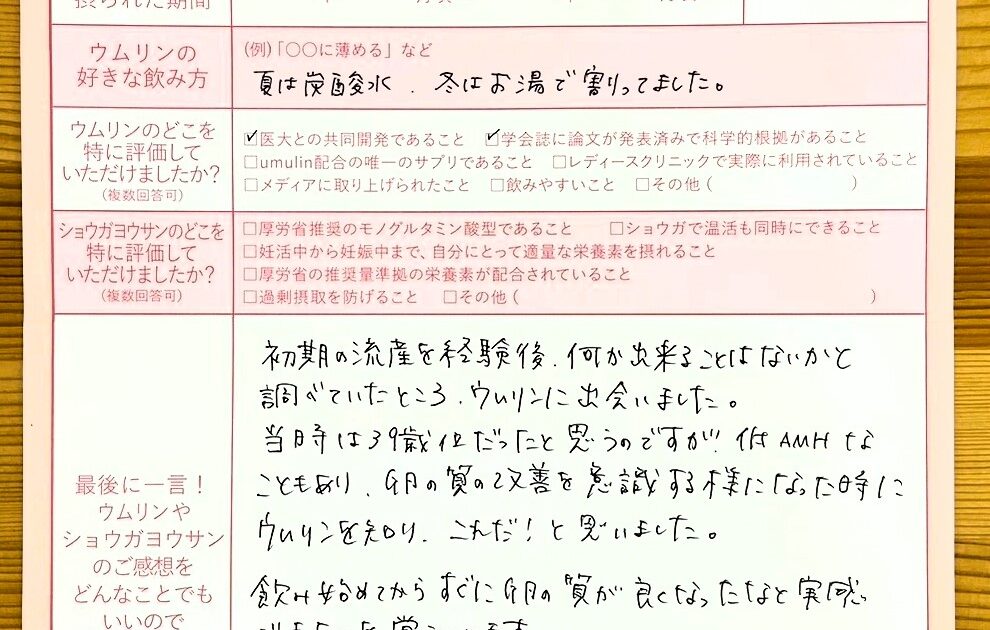 摂られた期間
ウムリンの
好きな飲み方
(例)「〇〇に薄める」など
夏は炭酸水、冬はお湯で割ってました。
ウムリンのどこを
特に評価して
いただけましたか?
(複数回答可)
☑医大との共同開発であること ☑学会誌に論文が発表済みで科学的根拠があること
□umulin配合の唯一のサプリであること □レディースクリニックで実際に利用されていること
□メディアに取り上げられたこと □飲みやすいこと □その他 ( )
ショウガヨウサンのどこを
特に評価して
いただけましたか?
(複数回答可)
□厚労省推奨のモノグルタミン酸型であること □ショウガで温活も同時にできること
□妊活中から妊娠中まで、自分にとって適量な栄養素を摂れること
□厚労省の推奨量準拠の栄養素が配合されていること
□過剰摂取を防げること □その他 ( )
最後に一言!
ウムリンや
ショウガヨウサン
のご感想を
どんなことでも
いいので
初期の流産を経験後、何か出来ることはないかと
調べていたところ、ウムリンに出会いました。
当時は39歳位だったと思うのですが、低AMHな
こともあり、卵の質の改善を意識する様になった時に
ウムリンを知り、これだ!と思いました。
飲み始めてからすぐに卵の質が良くなったなと実感